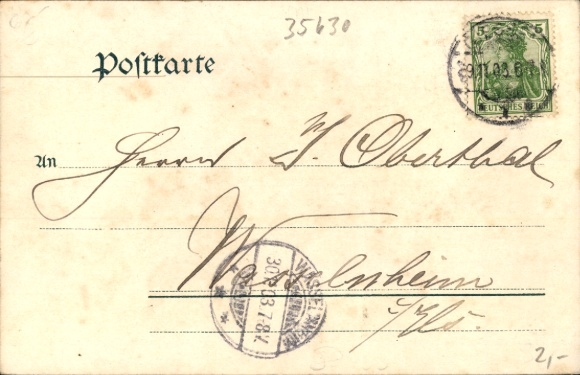 35630
Postkarte
5 5
DEUTSCHES REICH
An Herrn J. Oberthal
Wasselnheim
i/Els.
WASSELNHEIM
30.11.03.7-8V.
2,-